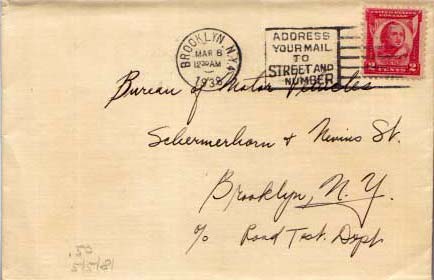 BROOKLYN, N.Y.
MAR 8
12 30 AM
1938
ADDRESS
YOUR MAIL
TO
STREET AND
NUMBER
UNITED STATES
POSTAGE
2 CENTS 2
Bureau of Motor Vehicles
Schermerhorn & Nevins St.
Brooklyn, N.Y.
c/o Road Test. Dept
.50
5/5/81